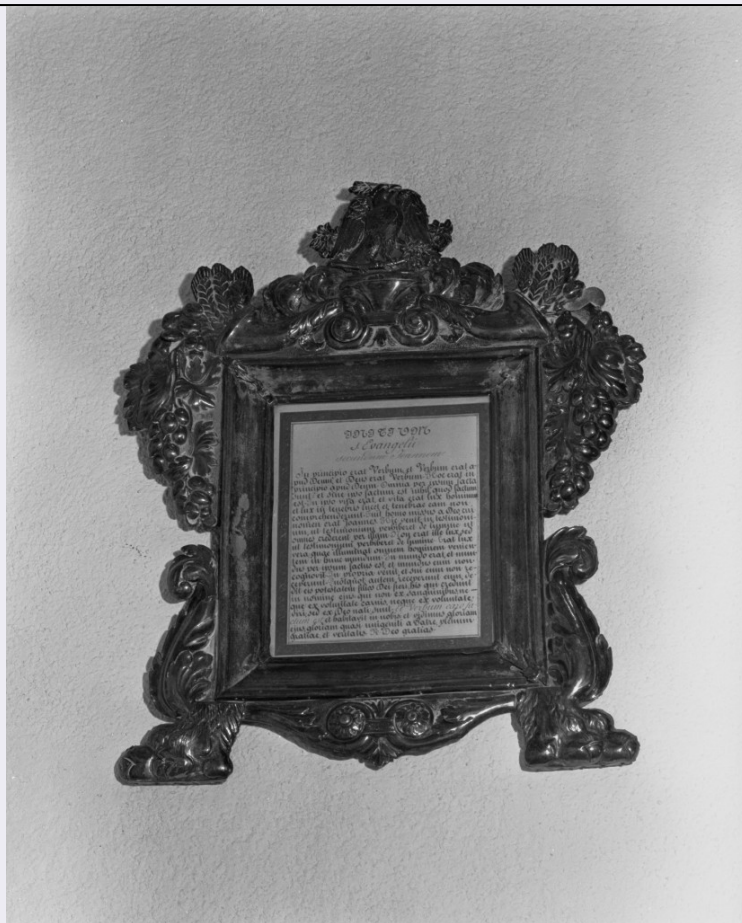 S. Evangelii
In principio erat Verbum, et Verbum erat a-
pud Deum, et Deus erat Verbum. Hoc erat in
principio apud Deum. Omnia per ipsum facta
sunt: et sine ipso factum est nihil, quod factum
est. In ipso vita erat, et vita erat lux hominum
et lux in tenebris lucet, et tenebrae eam non
comprehenderunt. Fuit homo missus a Deo cui
nomen erat Joannes. Hic venit in testimoni-
um, ut testimonium perhiberet de lumine ut
omnes crederent per illum. Non erat ille lux, sed
ut testimonium perhiberet de lumine. Erat lux
vera quae illuminat omnem hominem venien-
tem in hunc mundum. In mundo erat, et mun-
dus per ipsum factus est, et mundus eum non
cognovit. In propria venit, et sui eum non re-
ceperunt. Quotquot autem receperunt eum, de-
dit eis potestatem filios Dei fieri, his qui credunt
in nomine ejus: qui non ex sanguinibus, ne-
que ex voluntate carnis, neque ex voluntate
viri, sed ex Deo nati sunt. Et Verbum caro fa-
ctum est, et habitavit in nobis et vidimus gloriam
ejus, gloriam quasi unigeniti a Patre, plenum
gratiae et veritatis. R. Deo gratias.